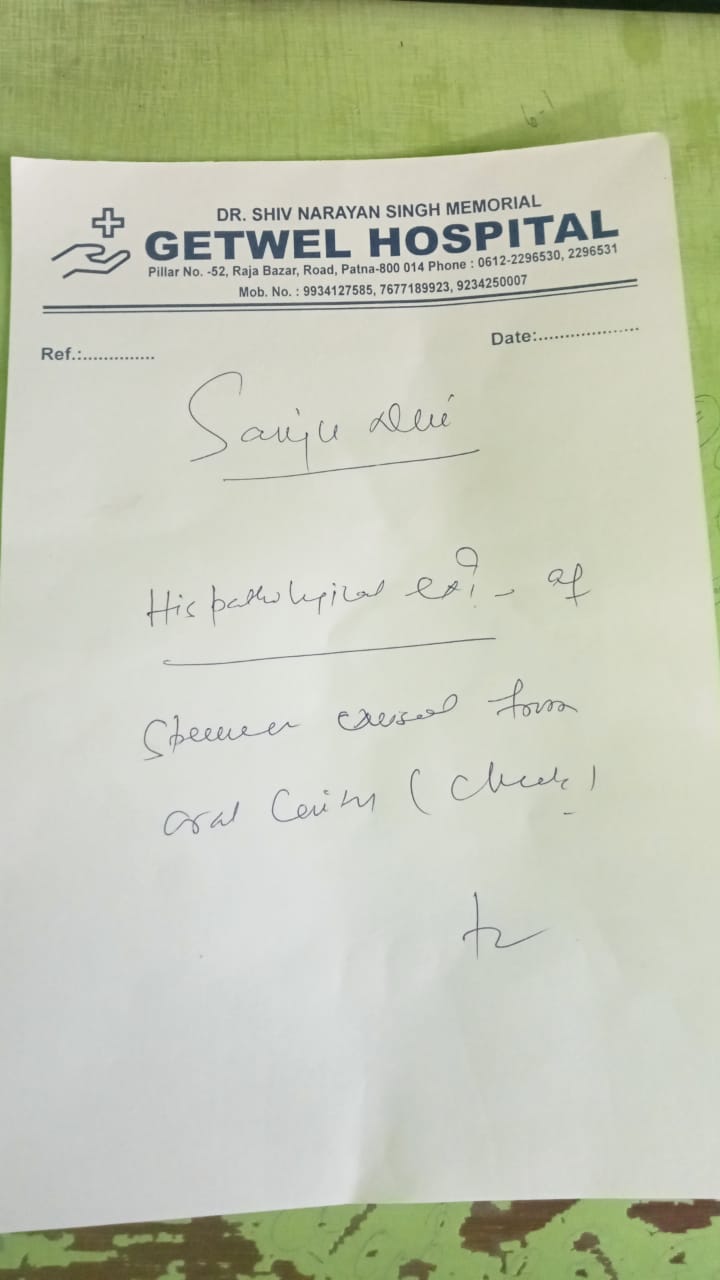 DR. SHIV NARAYAN SINGH MEMORIAL
GETWEL HOSPITAL
Pillar No. -52, Raja Bazar, Road, Patna-800 014 Phone : 0612-2296530, 2296531
Mob. No. : 9934127585, 7677189923, 9234250007
Ref.:..............
Date:...................
Sanju Devi
Hispathological exn. of
Specimen excised from
oral Cavity (Cheek)